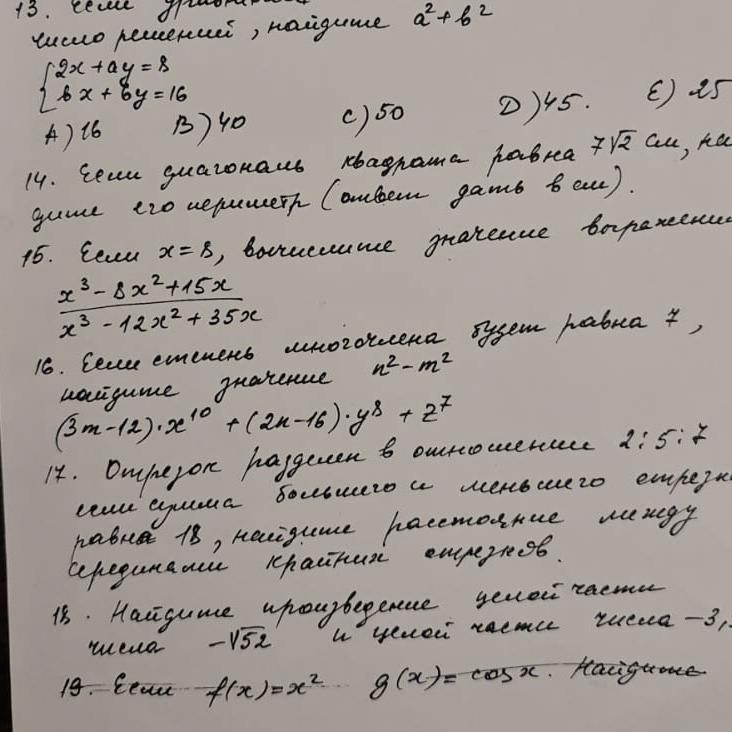 13. Если
число решений, найдите a² + b²
{2x + ay = 8
bx + 6y = 16
A) 16 B) 40 C) 50 D) 45. E) 25
14. Если диагональ квадрата равна 7√2 см, на
дите его периметр (ответ дать в см).
15. Если x = 8, вычислите значение выражени
x³ - 8x² + 15x
x³ - 12x² + 35x
16. Если степень многочлена будет равна 7,
найдите значение n² - m²
(3m - 12) · x¹⁰ + (2n - 16) · y⁸ + z⁷
17. Отрезок разделен в отношении 2 : 5 : 7
если сумма большего и меньшего отрезк
равна 18, найдите расстояние между
серединами крайних отрезков.
18. Найдите произведение целой части
числа -√52 и целой части числа -3,
19. Если f(x) = x² g(x) = cos x. Найдите